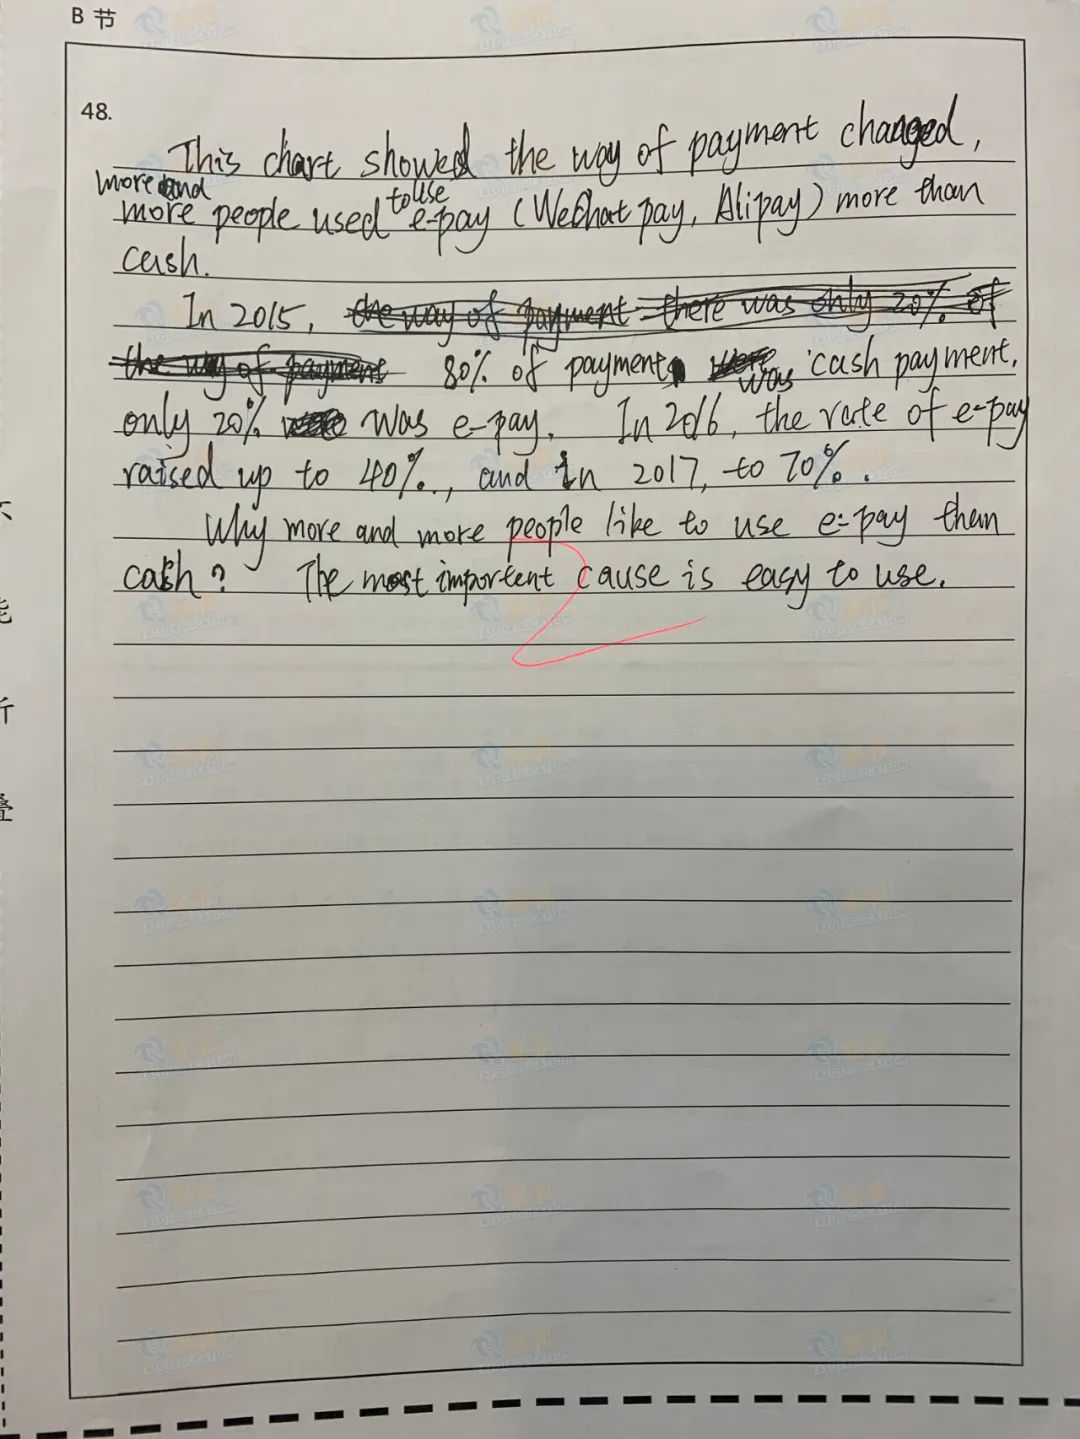 B 节
48.
This chart showed the way of payment changed,
more and
more people used to use e-pay (WeChat pay, Alipay) more than
cash.
In 2015, the way of payment there was only 20% of
the way of payment 80% of payment was cash payment,
only 20% was e-pay. In 2016, the rate of e-pay
raised up to 40%., and in 2017, to 70%.
Why more and more people like to use e-pay then
cash? The most important cause is easy to use.